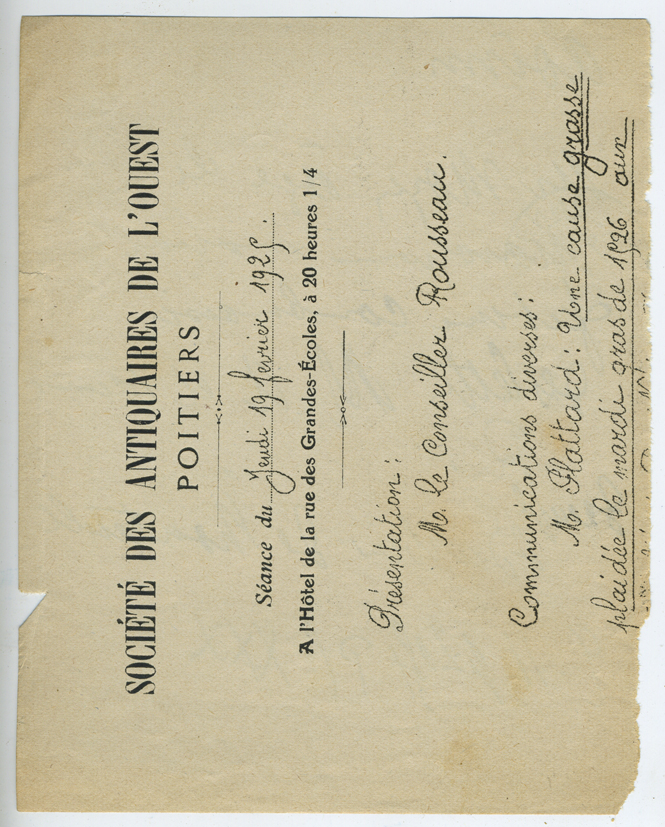 SOCIÉTÉ DES ANTIQUAIRES DE L'OUEST
POITIERS
Séance du Jeudi 19 février 1925.
A l'Hôtel de la rue des Grandes-Écoles, à 20 heures 1/4
Présentation :
M. le Conseiller Rousseau.
Communications diverses :
M. Plattard : Une cause grasse
plaidée le mardi gras de 1526 aux